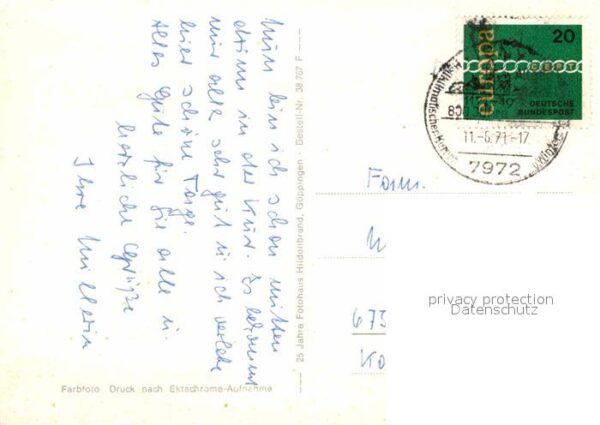 Nun bin ich schon mitten
drin in der Kur. Es bekommt
mir alle sehr gut u. ich verlebe
hier schöne Tage.
Alles Gute für Sie alle u.
herzliche Grüße
Ihre
25 Jahre Fotohaus Hildenbrand, Göppingen · Bestell-Nr. 38 787 F
Farbfoto Druck nach Ektachrome-Aufnahme
europa
20
CEPT
DEUTSCHE
BUNDESPOST
11.-6.71-17
7972
Fam.
673
privacy protection
Datenschutz